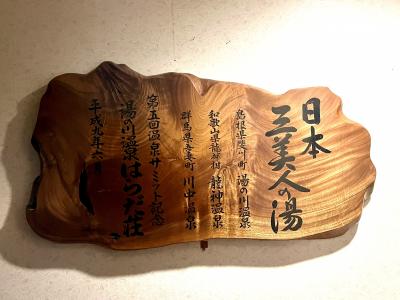 日本
三美人の湯
島根県斐川町 湯の川温泉
和歌山県龍神村 龍神温泉
群馬県吾妻町 川中温泉
第五回温泉サミット記念
湯の川温泉はらだ荘
平成九年六月